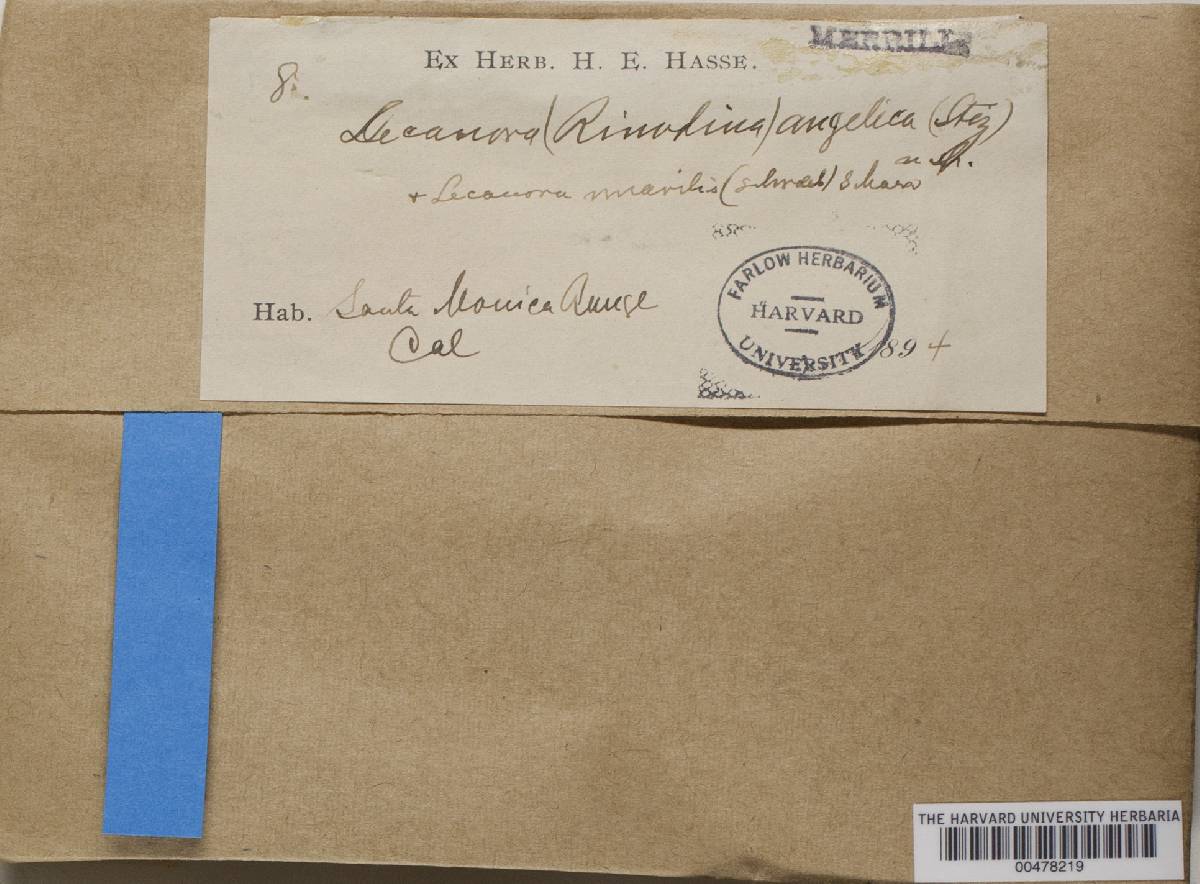 MERRILL
EX HERB. H. E. HASSE.
8.
Lecanora (Rinodina) angelica (Stiz)
+ Lecanora muralis (Schreb) Schaer
Hab. Santa Monica Range
Cal
FARLOW HERBARIUM
HARVARD
UNIVERSITY
1894
THE HARVARD UNIVERSITY HERBARIA
00478219